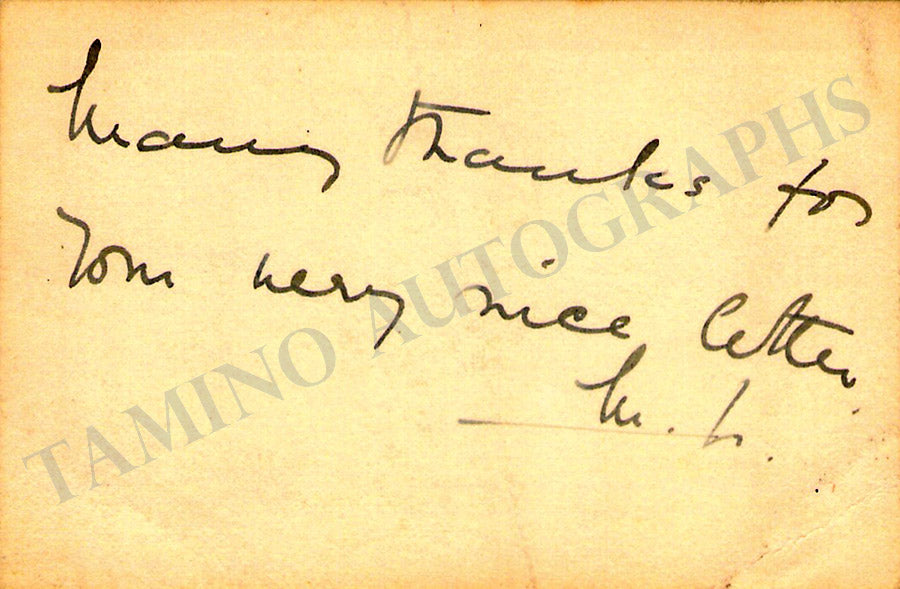 Many thanks for
your very nice letter.
M. L.
TAMINO AUTOGRAPHS